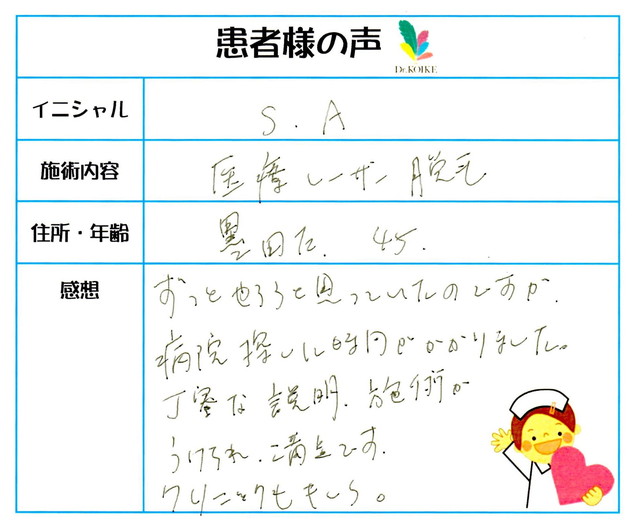 患者様の声
Dr.KOIKE
イニシャル
S.A
施術内容
医療レーザー脱毛
住所・年齢
墨田区. 45.
感想
ずっとやろうと思っていたのですが、
病院探しに時間がかかりました。
丁寧な説明、施術が
うけられ、満足です。
クリニックもキレイ。